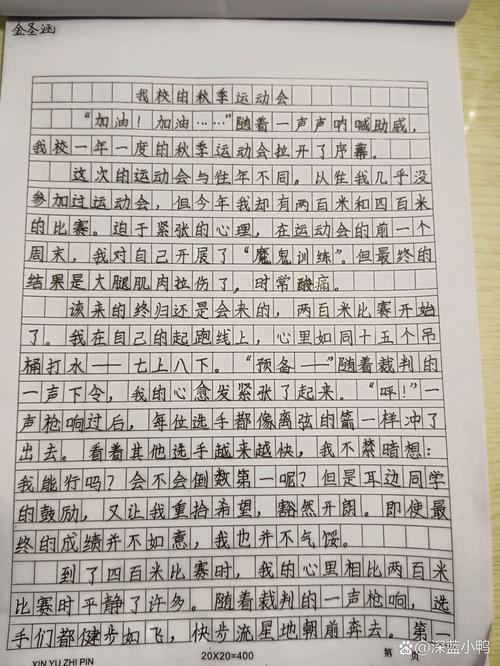 金圣涵
我校的秋季运动会
“加油！加油……”随着一声声呐喊助威，
我校一年一度的秋季运动会拉开了序幕。
这次的运动会与往年不同。从往我几乎没
参加过运动会，但今年我却有两百米和四百米
的比赛。迫于紧张的心理，在运动会的前一个
周末，我对自己开展了“魔鬼训练”。但最终的
结果是大腿肌肉拉伤了，时常酸痛。
该来的终归还是会来的，两百米比赛开始
了。我在自己的起跑线上，心里如同十五个吊
桶打水——七上八下。“预备——”随着裁判的
一声下令，我的心愈发紧张了起来。“呯！”一
声枪响过后，每位选手都像离弦的箭一样冲了
出去。看着其他选手越来越快，我不禁暗想：
我能行吗？会不会倒数第一呢？但是耳边同学
的鼓励，又让我重拾希望，豁然开朗。即使最
终的成绩并不如意，我也并不气馁。
到了四百米比赛时，我的心里相比两百米
比赛时平静了许多。随着裁判的一声枪响，选
手们都健步如飞，快步流星地朝前奔去。第一
XIN YU ZHI PIN 20X20=400 第 页
@深蓝小鸭